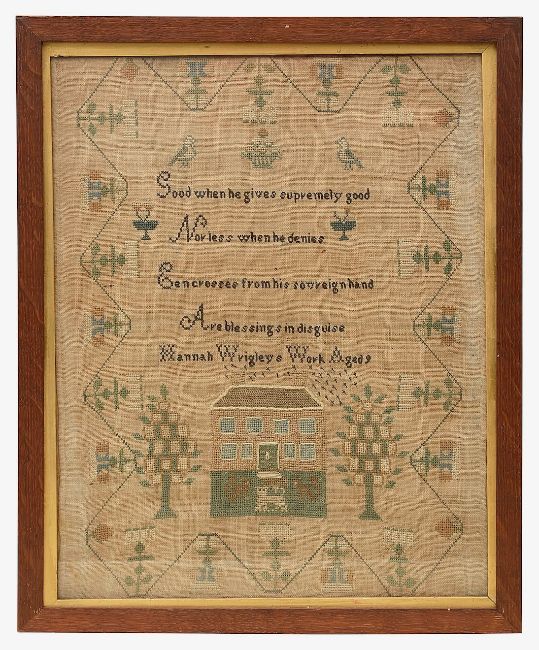 Good when he gives supremely good
Nor less when he denies
Een crosses from his sovreign hand
Are blessings in disguise
Hannah Wrigleys Work Aged 9